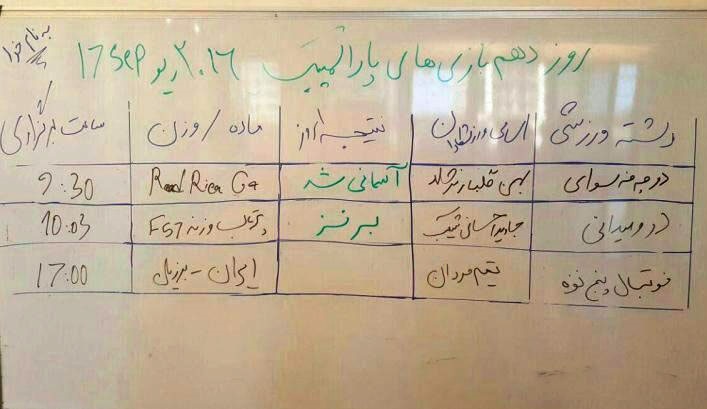 به نام خدا
روز دهم بازی های پارالمپیک ۲۰۱۶ ریو 17 Sep
رشته ورزشی اسامی ورزشکاران نتیجه ماده / وزن ساعت برگزاری
دوچرخه سواری بهمن گلبارنژاد آسمانی شد Road Race C4 9:30
دو و میدانی جاوید احسانی شکیب برنز پرتاب وزنه F57 10:03
فوتبال پنج نفره تیم مردان ایران - برزیل 17:00